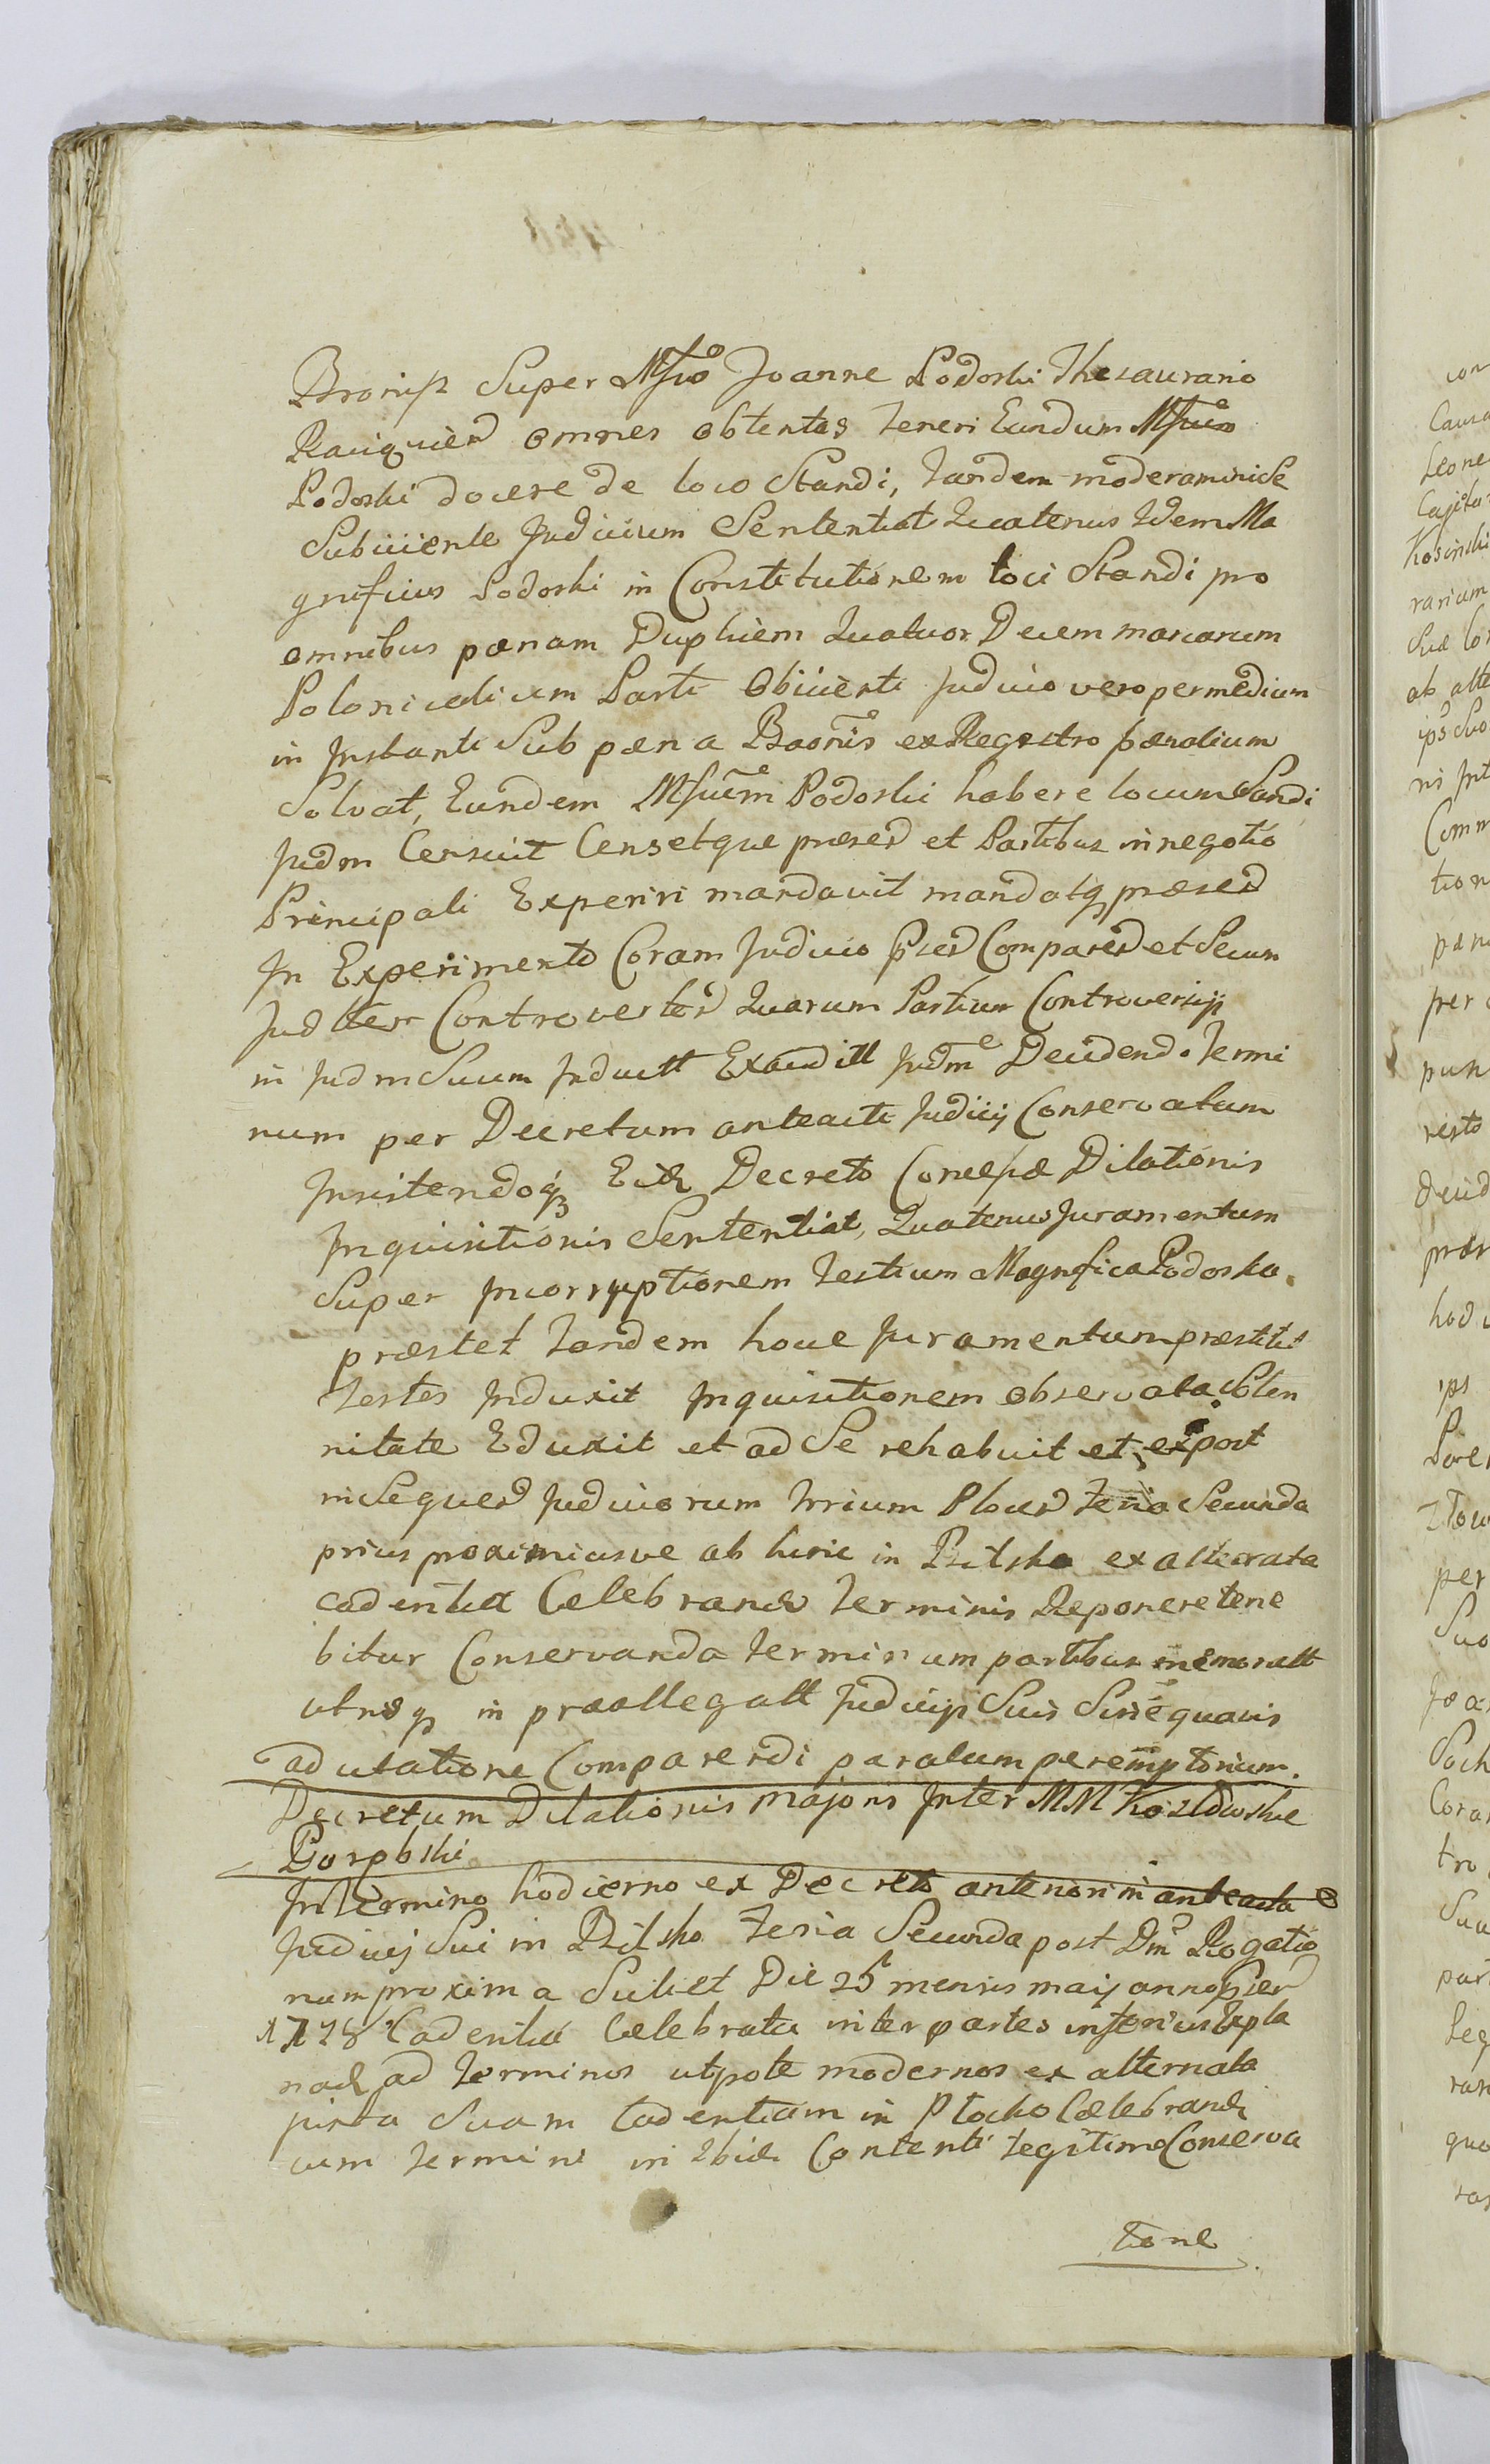 Super Mfico Joanne Podoski Thesaurario
omnes obtentas teneri Eundum Mficum
Podoski docere de loco Standi, tandem moderaminise
Subiiciente Judicium Sententiat Quatenus Idem Ma
gnificus Podoski in Constitutionem loci Standi pro
omnibus pœnam Duplicem Quatuor Decem marcarum
Polonicalium Parti Obiicienti Judicio vero per medium
in Instanti Sub pœna Baonis ex Regestro pœnalium
Solvat, Eundem Mficum Podoski habere locum Standi
Judm Censuit Censetque præsed et Partibus in negotio
Principali Experiri mandavit mandatq præsed
In Experimento Coram Judicio Compared et Secum
Judtter Controverted Quarum Partium Controversijs
in Judm Suum Inductt Exauditt Judm Decidendo Termi
num per Decretum anteacti Judicij Conservatum
Insistendoq Eid Decreto Concessæ Dilationis
Inquisitionis Sententiat, Quatenus Juramentum
Super Incorruptionem Testium Magnifica Podoska
præstet tandem hocce Juramentum præstitit
Testes Induxit Inquisitionem observata Solen
nitate Eduxit et ad Se rehabuit et expost
in Sequed Judiciorum Trrium Ploced Feria Secunda
prius proximiusve ab hinc in Bilsko ex alternata
cadentia Celebrand Terminis Reponere tene
bitur Conservanda terminum partibus memoratt
utrisq in præallegatt Judicijs Suis Sine quavis
adcitatione Comparendi paratum peremptorium.
Decretum Dilationis majoris Inter MM Kozłowskie
In Termino hodierno ex Decreto anteriori in anteacta
Judicij Sui in Bilsko Feria Secunda post Dm Rogatio
num proxima Scilicet Die 25 mensis maij anno
1728 Cadentia Celebrata inter partes inferius
nad ad Terminos utpote modernos ex alternata
juxta Suam Cadentiam in Plocko Celebrand
cum termini in Ibid Contenti legitima Conserva
tione